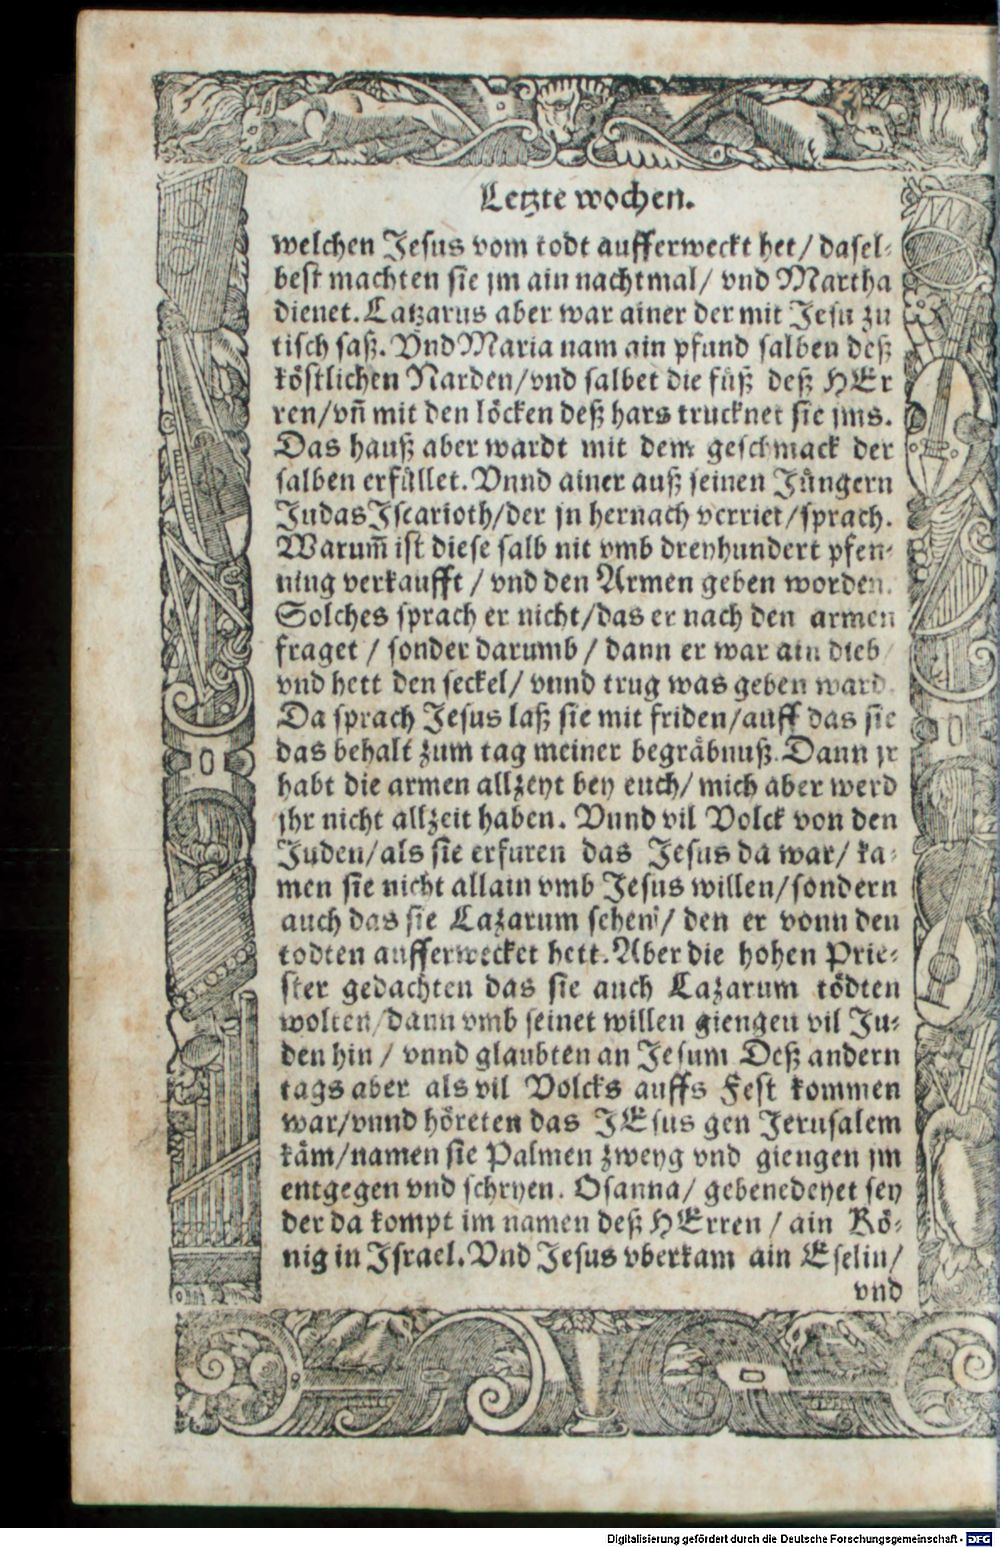 Letzte wochen.
welchen Jesus vom todt aufferweckt het/ dasel-
best machten sie jm ain nachtmal/ vnd Martha
dienet. Latzarus aber war ainer der mit Jesu zu
tisch saß. Vnd Maria nam ain pfund salben deß
köstlichen Narden/vnd salbet die füß deß HEr
ren/vñ mit den löcken deß hars trucknet sie jms.
Das hauß aber wardt mit dem geschmack der
salben erfüllet. Vnnd ainer auß seinen Jüngern
Judas Iscarioth/der jn hernach verriet/sprach.
Warum̃ ist diese salb nit vmb dreyhundert pfen-
ning verkaufft / vnd den Armen geben worden.
Solches sprach er nicht/das er nach den armen
fraget / sonder darumb / dann er war ain dieb/
vnd hett den seckel/ vnnd trug was geben ward.
Da sprach Jesus laß sie mit friden/auff das sie
das behalt zum tag meiner begräbnuß. Dann jr
habt die armen allzeyt bey euch/ mich aber werd
jhr nicht allzeit haben. Vnnd vil Volck von den
Juden/als sie erfuren das Jesus da war/ ka-
men sie nicht allain vmb Jesus willen/sondern
auch das sie Lazarum sehen/ den er vonn den
todten aufferwecket hett. Aber die hohen Prie-
ster gedachten das sie auch Lazarum tödten
wolten/dann vmb seinet willen giengen vil Ju-
den hin / vnnd glaubten an Jesum Deß andern
tags aber als vil Volcks auffs Fest kommen
war/vnnd höreten das JEsus gen Jerusalem
käm/namen sie Palmen zweyg vnd giengen jm
entgegen vnd schryen. Osanna/ gebenedeyet sey
der da kompt im namen deß HErren / ain Kö-
nig in Israel. Vnd Jesus vberkam ain Eselin/
vnd
Digitalisierung gefördert durch die Deutsche Forschungsgemeinschaft - DFG